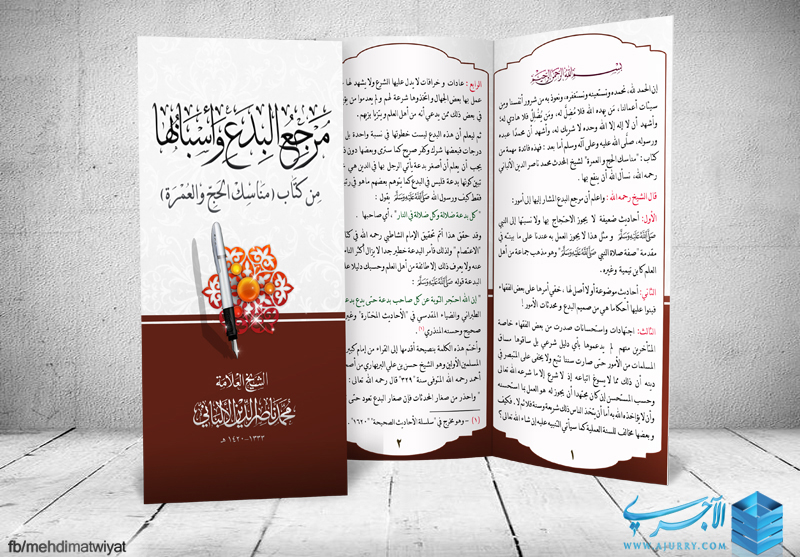 مَرْجِعُ البِدَعِ وَأَسْبَابُهَا
مِن كِتَاب (مَنَاسِكُ الحَجِّ وَالعُمْرَة)
الشَّيْخِ العَلَّامَة
مُحَمَّد نَاصِر الدِّين الأَلْبَانِي
١٣٣٣-١٤٢٠ هـ
بسم الله الرحمن الرحيم
إن الحمد لله، نحمده ونستعينه ونستغفره، ونعوذ به من شرور أنفسنا ومن
سيئات أعمالنا، مَن يهده الله فلا مُضِلَّ له، ومَن يُضْلِل فلا هادي له؛
وأشهد أن لا إله إلا الله وحده لا شريك له، وأشهد أن محمدًا عبده
ورسوله، صلَّى الله عليه وعلى آله وسلم أما بعد : فهذه فائدة مهمة من
كتاب : "مناسك الحج والعمرة" لشيخ المحدث محمد ناصر الدين الألباني
رحمه الله، نسأل الله أن ينفع بها.
قال الشيخ رحمه الله : واعلم أن مرجع البدع المشار إليها إلى أمور:
الأول: أحاديث ضعيفة لا يجوز الاحتجاج بها ولا نسبتها إلى النبي
ﷺ و مثل هذا لا يجوز العمل به عندنا على ما بينته في
مقدمة "صفة صلاة النبي ﷺ" وهو مذهب جماعة من أهل
العلم كابن تيمية وغيره.
الثاني: أحاديث موضوعة أو لا أصل لها ، خفي أمرها على بعض الفقهاء
فبنوا عليها أحكاما هي من صميم البدع و محدثات الأمور !
الثالث: اجتهادات واستحسانات صدرت من بعض الفقهاء خاصة
المتأخرين منهم لم يدعموها بأي دليل شرعي بل ساقوها مساق
المسلمات من الأمور حتى صارت سننا تتبع ولا يخفى على المتبصر في
دينه أن ذلك مما لا يسوغ اتباعه إذ لا شرع إلا ما شرعه الله تعالى
وحسب المستحسن إن كان مجتهدا أن يجوز له هو العمل بما استحسنه
وأن لا يؤاخذه الله به أما أن يتخذ الناس ذلك شريعة وسنة فلا ثم لا . فكيف
و بعضها مخالف للسنة العملية كما سيأتي التنبيه عليه إن شاء الله تعالى؟
١
الرابع : عادات و خرافات لا يدل عليها الشرع ولا يشهد لها
عمل بها بعض الجهال واتخذوها شرعة لهم و لم يعدموا من
في بعض ذلك ممن يدعي أنه من أهل العلم و يتزيا بزيهم .
ثم ليعلم أن هذه البدع ليست خطورتها في نسبة واحدة بل
درجات فبعضها شرك وكفر صريح كما سترى وبعضها دون
يجب أن يعلم أن أصغر بدعة يأتي الرجل بها في الدين هي
تبين كونها بدعة فليس في البدع كما يتوهم بعضهم ماهو في
فقط كيف ورسول الله ﷺ يقول :
"كل بدعة ضلالة وكل ضلالة في النار" ، أي صاحبها .
وقد حقق هذا أتم تحقيق الإمام الشاطبي رحمه الله في
"الاعتصام" ولذلك فأمر البدعة خطير جدا لا يزال أكثر
عنه ولا يعرف ذلك إلا طائفة من أهل العلم وحسبك دليلا
البدعة قوله ﷺ
"إن الله احتجر التوبة عن كل صاحب بدعة حتى يدع
الطبراني والضياء المقدسي في "الأحاديث المختارة"
صحيح وحسنه المنذري (١)
وأختم هذه الكلمة بنصيحة أقدمها إلى القراء من إمام كبير
المسلمين الأولين وهو الشيخ حسن بن علي البربهاري من
أحمد رحمه الله المتوفى سنة "٣٢٩" قال رحمه الله تعالى :
" واحذر من صغار المحدثات فإن صغار البدع تعود حتى
(١) - وهو مخرج في "سلسلة الأحاديث الصحيحة" "١٦٢٠" .
٢
fb/mehdimatwiyat
الآجري
WWW.AJURRY.COM